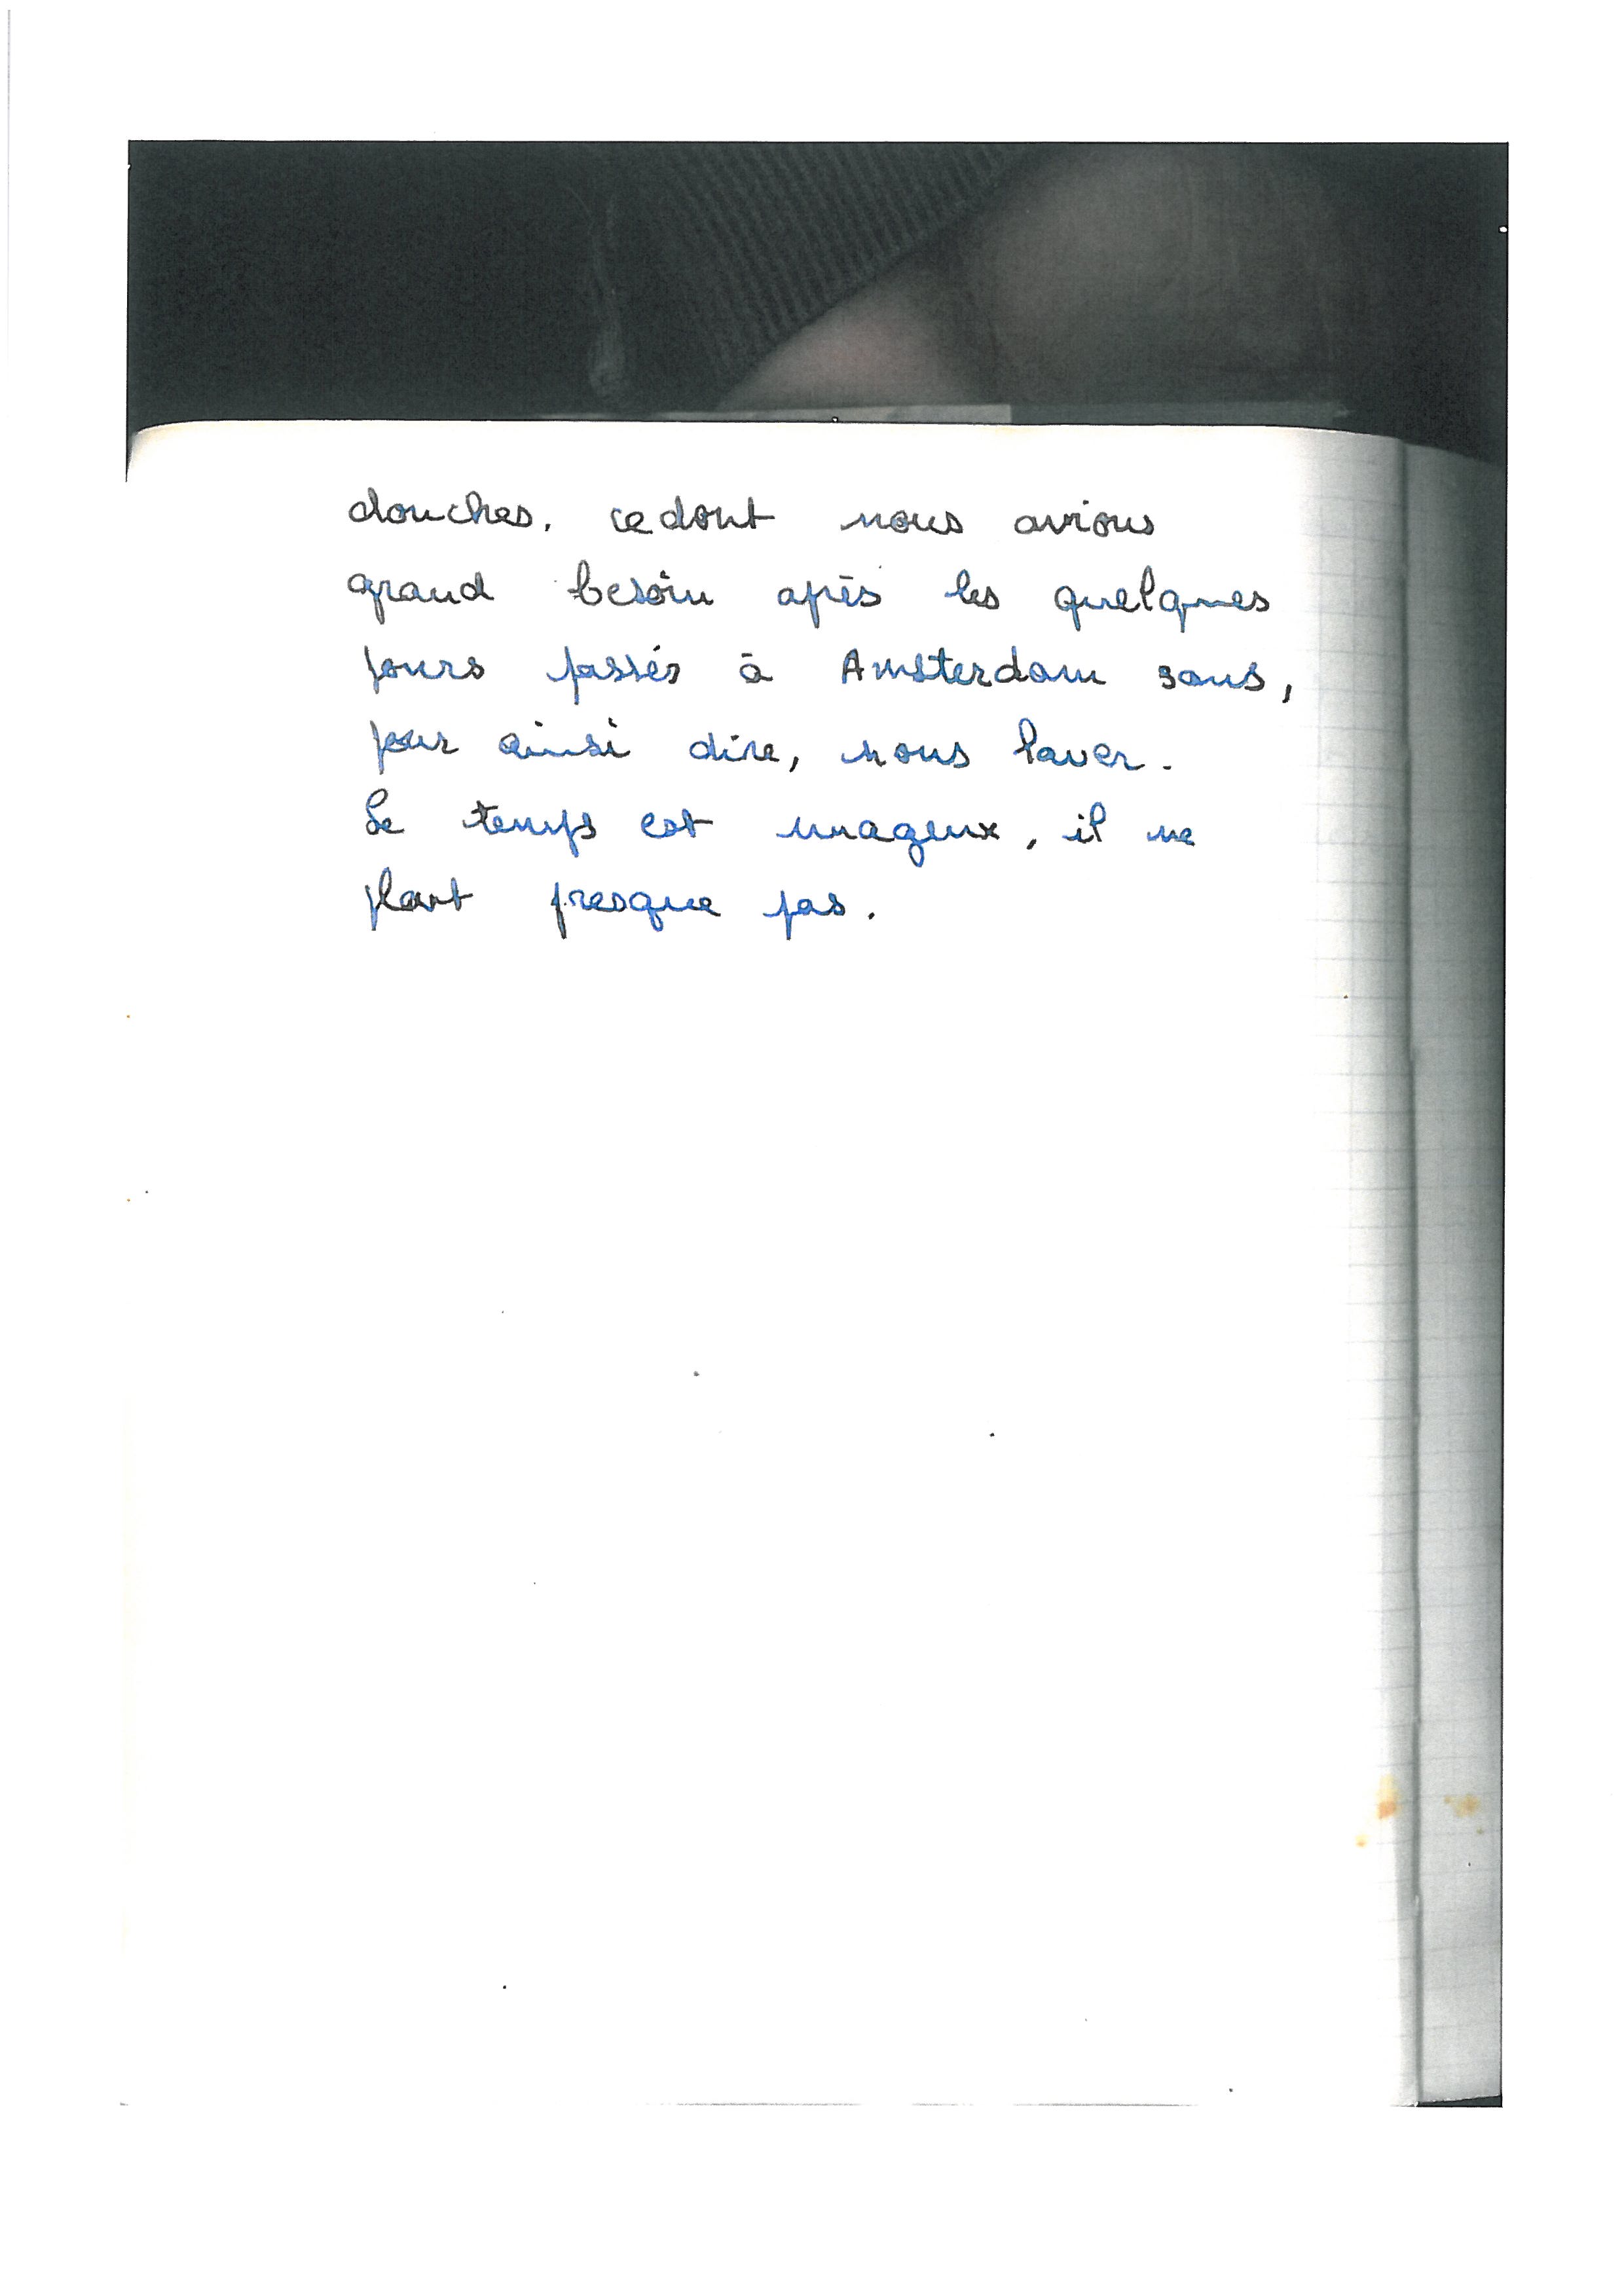 douches, ce dont nous avions
grand besoin après les quelques
jours passés à Amsterdam sans,
pour ainsi dire, nous laver.
Le temps est nuageux, il ne
pleut presque pas.